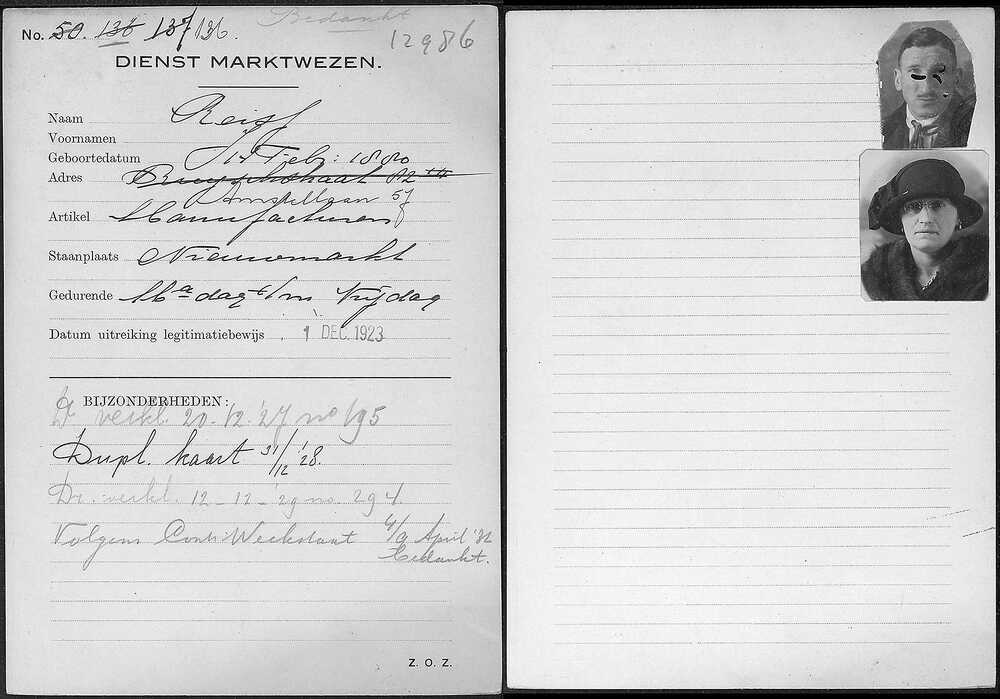 No. 50. 136 137/136.
Bedankt
12986
DIENST MARKTWEZEN.
Naam Reiss
Voornamen J
Geboortedatum 14 Feb: 1880
Adres 82
Amstellaan 57
Artikel Manufacturen
Staanplaats Nieuwmarkt
Gedurende Ma dag t/m Vrijdag
Datum uitreiking legitimatiebewijs 1 DEC. 1923
BIJZONDERHEDEN:
Dr verkl. 20-12-'27 no 195
Dupl. kaart 31/12 '28.
Dr. verkl. 12-12-'29 no. 294.
Volgens Conto Weekstaat 4/9 April '32
bedankt.
Z. O. Z.